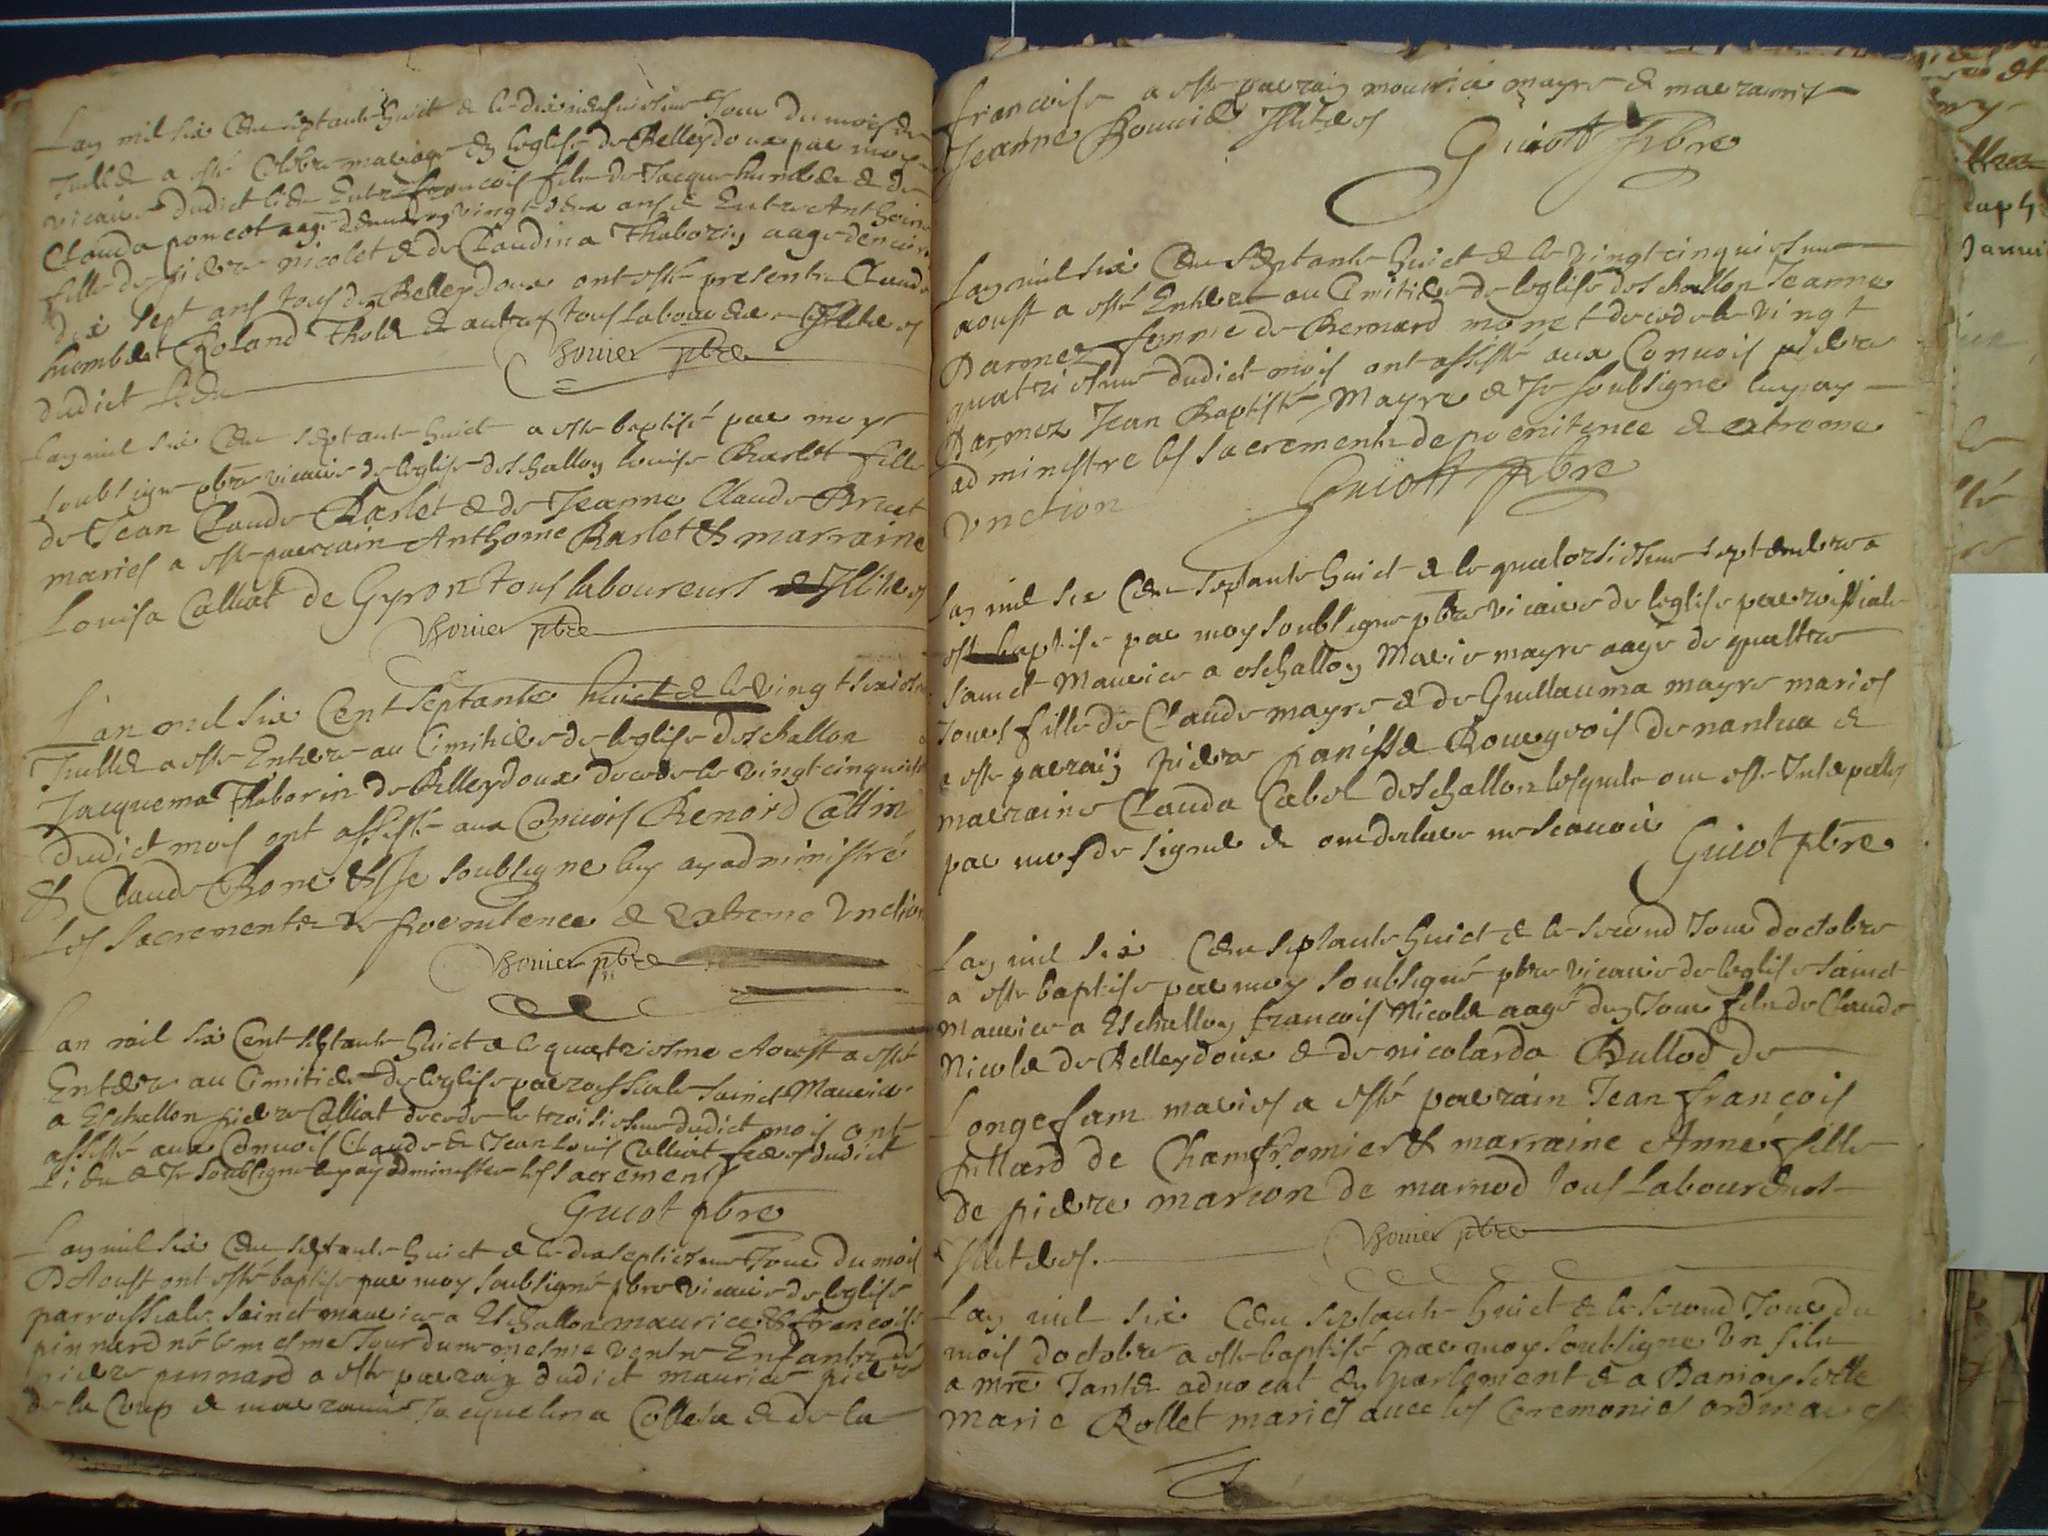 Lan mil six Cent septante huict & le dixneufviesme Jour du mois de
Juillet a esté Celebre mariage En leglise de Belleydoux par moy
vicaire dudict lieu Entre francois fils de Jacque humbert & de
Clauda poncet aagé denviron vingt deux ans & Entre Anthoina
fille de piere nicolet & de Claudina Thaborin aagé denviron
dix sept ans tous de Belleydoux ont esté presents Claude
humbert Roland & autres tous laboureurs Illiteres
dudict lieu
Bouier pbre
Lan mil six Cent septante huict a esté baptisé par moy
soubsigne pbre vicaire de leglise deschallon Louise Barlet fille
de Jean Claude Barlet & de Jeanne Claude Bruet
mariés a esté parrain Anthoine Barlet & marraine
Louisa Calliat de Gyron tous laboureurs Illiteres
Bouier pbre
Lan mil six Cent septante huict & le vingt sixiesme
Juillet a esté Enterre au Cimitiere de leglise deschallon
Jacquema Thaborin de Belleydoux decede le vingt cinquiesme
dudict mois ont assisté aux Convois Benoid Callin
& Claude Bone & Je soubsigne luy ay administré
Les sacrements de poenitence & Extreme Unction
Bouier pbre
Lan mil six Cent septante huict & le quatriesme Aoust a esté
Enterre au Cimitiere de leglise parrossiale sainct Maurice
a Eschallon piere Calliat decede le troisiesme dudict mois ont
assisté aux Convois Claude & Jean Louis Calliat freres dudict
lieu & Je soubsigne luy ay administre les sacrements
Guiot pbre
Lan mil six Cent septante huict & le dixseptiesme Jour du mois
DAoust ont esté baptise par moy soubsigné pbre vicaire de leglise
parroissiale sainct maurice a Eschallon maurice & francoise
pinnard né le mesme Jour dune mesme ventre Enfants de
piere pinnard a esté parrain dudict maurice piere
de la Coup & marraine Jacquelina Colleta & de la
francoise a esté parrain mourice mayre & marraine
Jeanne Bouuier Illiteres
Guiott pbre
Lan mil six Cent septante huict & le vingtcinquiesme
aoust a esté Enterre au Cimitiere de leglise deschallon Jeanne
Darmez femme de Bernard monet decede le vingt
quatriesme dudict mois ont assisté aux Convois piere
Darmez Jean Baptiste Mayre & Je soubsigne luy ay
administre les sacrements de poenitence & extreme
Unction
Guiott pbre
Lan mil six Cent septante huict & le quatorsiesme septembre a
esté baptise par moy soubsigne pbre vicaire de leglise parroissiale
sainct Maurice a eschallon Marie mayre aagé de quattre
Jours fille de Claude mayre & de Guillauma mayre mariés
a esté parrain piere panisset Bourgeois de nantua &
marraine Clauda Cabet deschallon lesquels ont esté Interpellés
par moy de signer & ont declare ne scavoir
Guiot pbre
Lan mil six Cent septante huict & le second Jour doctobre
a esté baptise par moy soubsigné pbre vicaire de leglise sainct
Maurice a Eschallon francois Nicolet aagé dun Jour fils de Claude
Nicolet de Belleydoux & de nicolarda Bullod de
Longefam mariés a esté parrain Jean françois
fullard de Chamfromier & marraine Anne fille
de piere marion de marnod tous Laboureurs
Illiteres.
Bouier pbre
Lan mil six Cent septante huict & le second Jour du
mois doctobre a esté baptisé par moy soubsigne Un fils
a mre Jantet advocat En parlement & a Damoyselle
Marie Rollet mariés avec les Ceremonies ordinaires